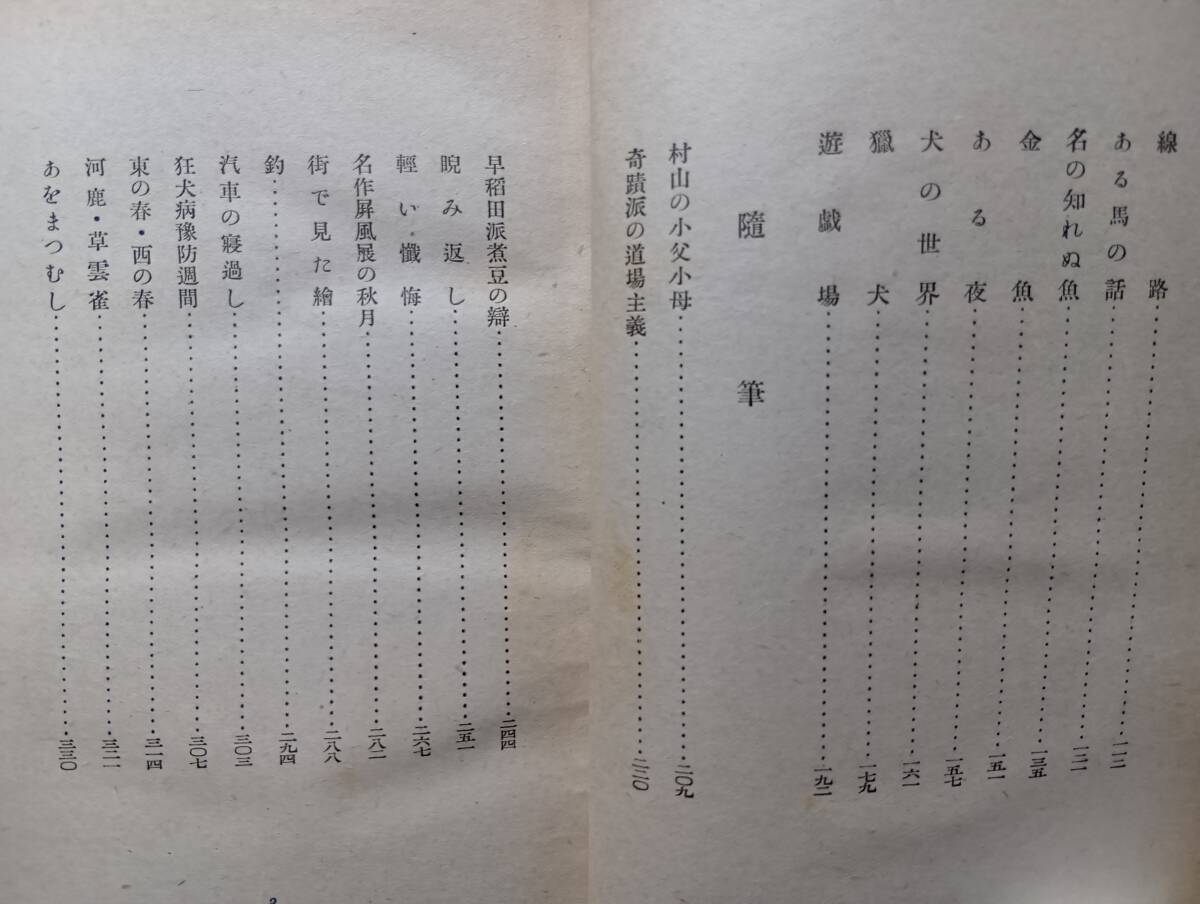 線路……一一二
ある馬の話……一二一
名の知れぬ魚……一三五
金魚……一五一
ある夜……一五七
犬の世界……一六一
獵犬……一七九
遊戲場……一九二
隨筆
村山の小父小母……二〇九
奇蹟派の道場主義……二二〇
早稻田派煮豆の辯……二四四
睨み返し……二五一
輕い懺悔……二六七
名作屛風展の秋月……二八二
街で見た繪……二八八
釣……二九四
汽車の寢過し……三〇三
狂犬病豫防週間……三〇七
東の春・西の春……三一四
河鹿・草雲雀……三二一
あをまつむし……三三〇